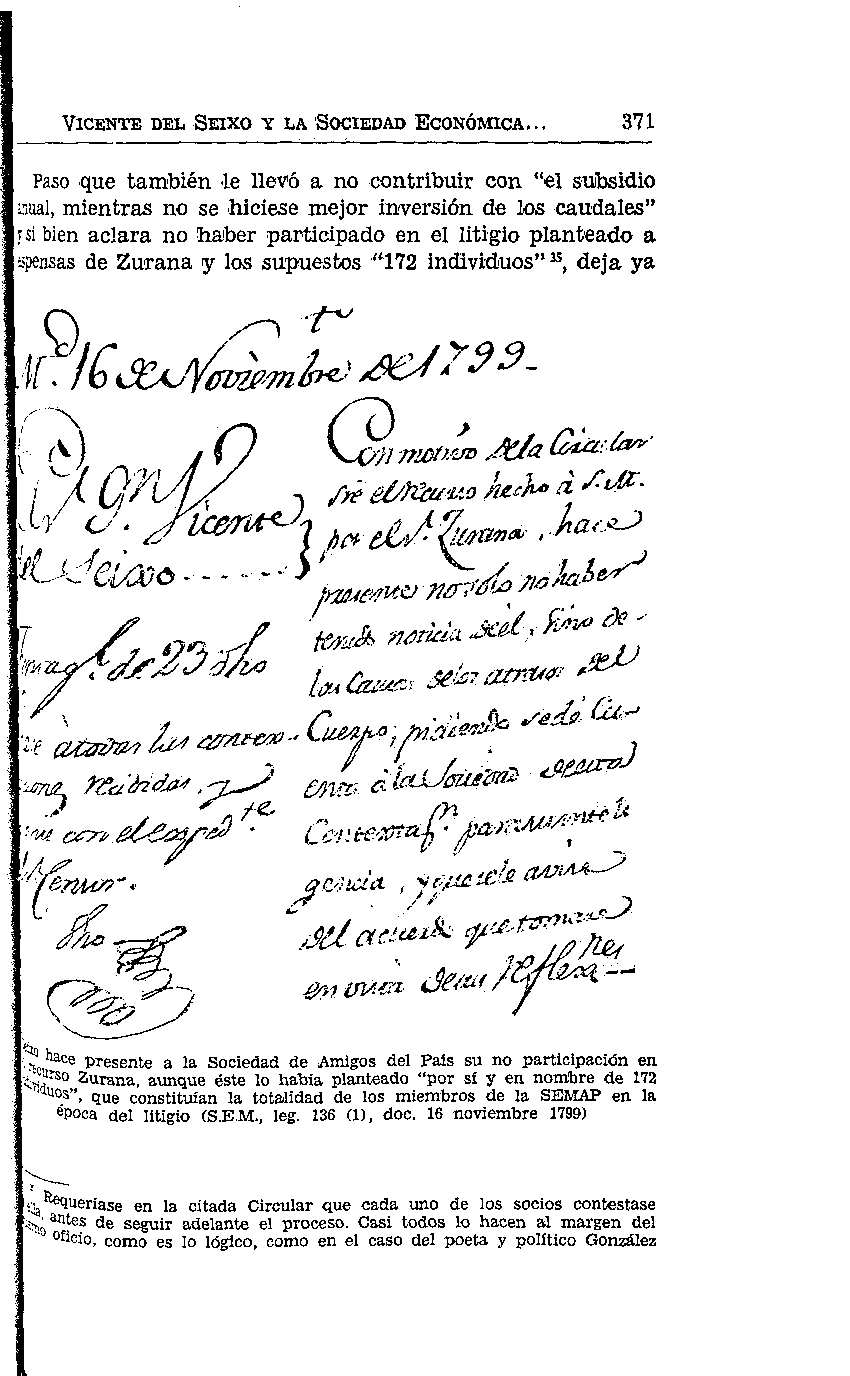 VICENTE DEL SEIXO Y LA SOCIEDAD ECONÓMICA... 371
Paso que también le llevó a no contribuir con "el subsidio
anual, mientras no se hiciese mejor inversión de los caudales"
y si bien aclara no haber participado en el litigio planteado a
expensas de Zurana y los supuestos "172 individuos" ¹⁵, deja ya
M.d 16 de Noviembre de 1799-
Vicente
del Seixo
de 23 dho
à todas las contex-
recibidas, y
con el exped.te
Censor.
dho
Con motivo de la Circular
sre el recurso hecho à S.M.
por el S.r Zurana, hace
presente no solo no haber
tenido noticia de él, sino de
las Causas de los atrasos del
Cuerpo; pidiendo se dé Cu-
enta à la Sociedad de esta
Contextas.n para su inteli
gencia, y que se le avise
del acuerdo que tomare
en vista de sus reflexa.nes
Seixo hace presente a la Sociedad de Amigos del País su no participación en
recurso Zurana, aunque éste lo había planteado "por sí y en nombre de 172
individuos", que constituían la totalidad de los miembros de la SEMAP en la
época del litigio (S.E.M., leg. 136 (1), doc. 16 noviembre 1799)
Requeríase en la citada Circular que cada uno de los socios contestase
antes de seguir adelante el proceso. Casi todos lo hacen al margen del
oficio, como es lo lógico, como en el caso del poeta y político González